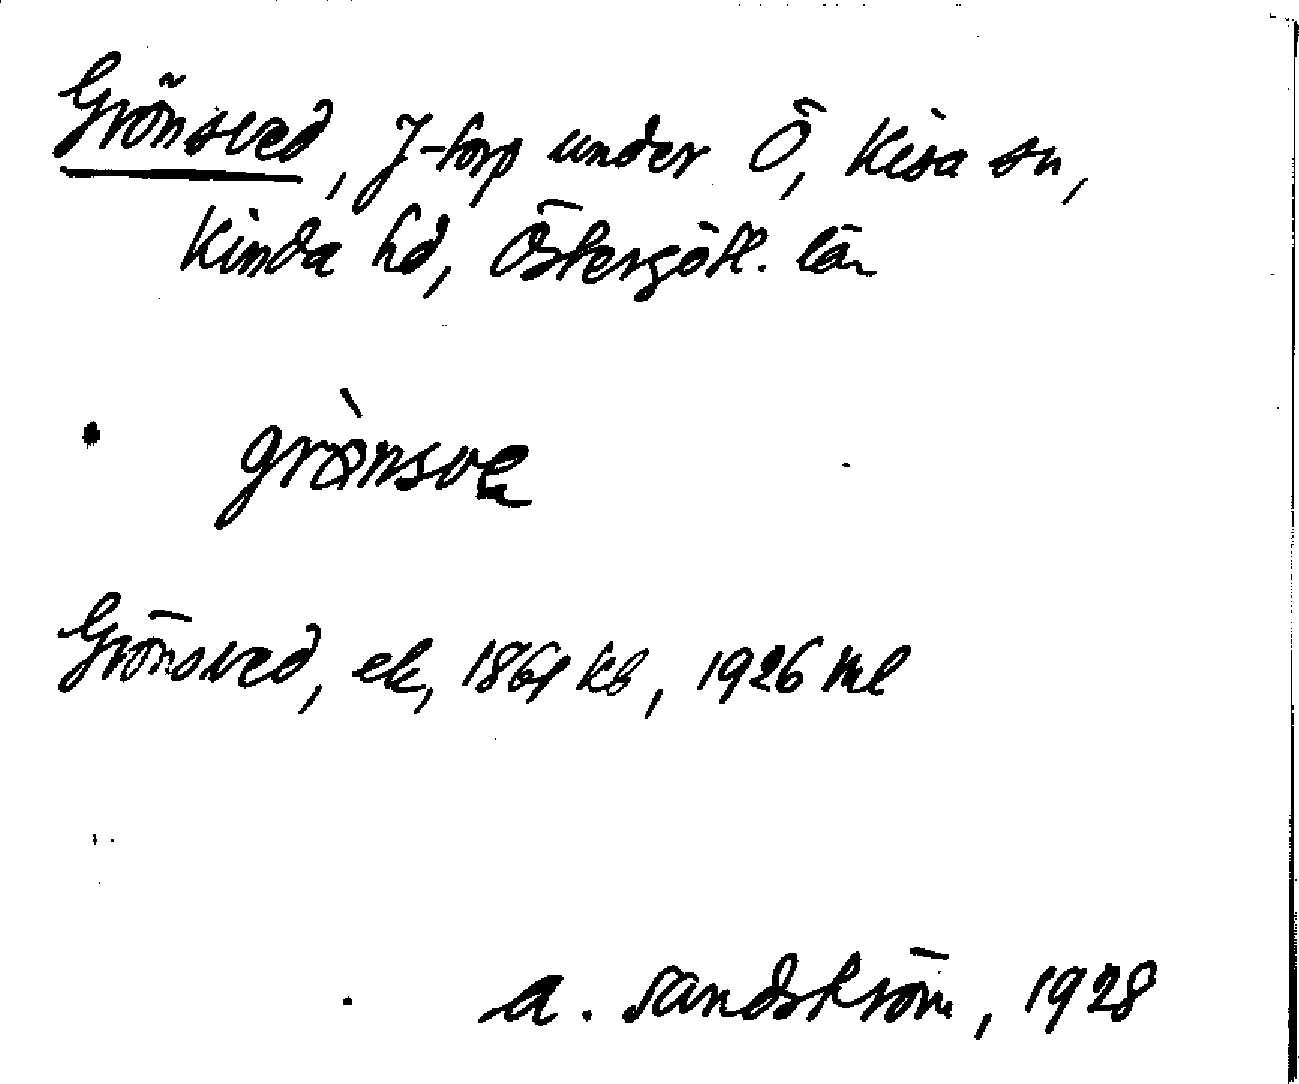 Grönsved, J-torp under Ö, Kisa sn,
Kinda hd, Östergötl. län
grönsve
Grönsved, ek, 1864 kb, 1926 ml
A. Sandström, 1928